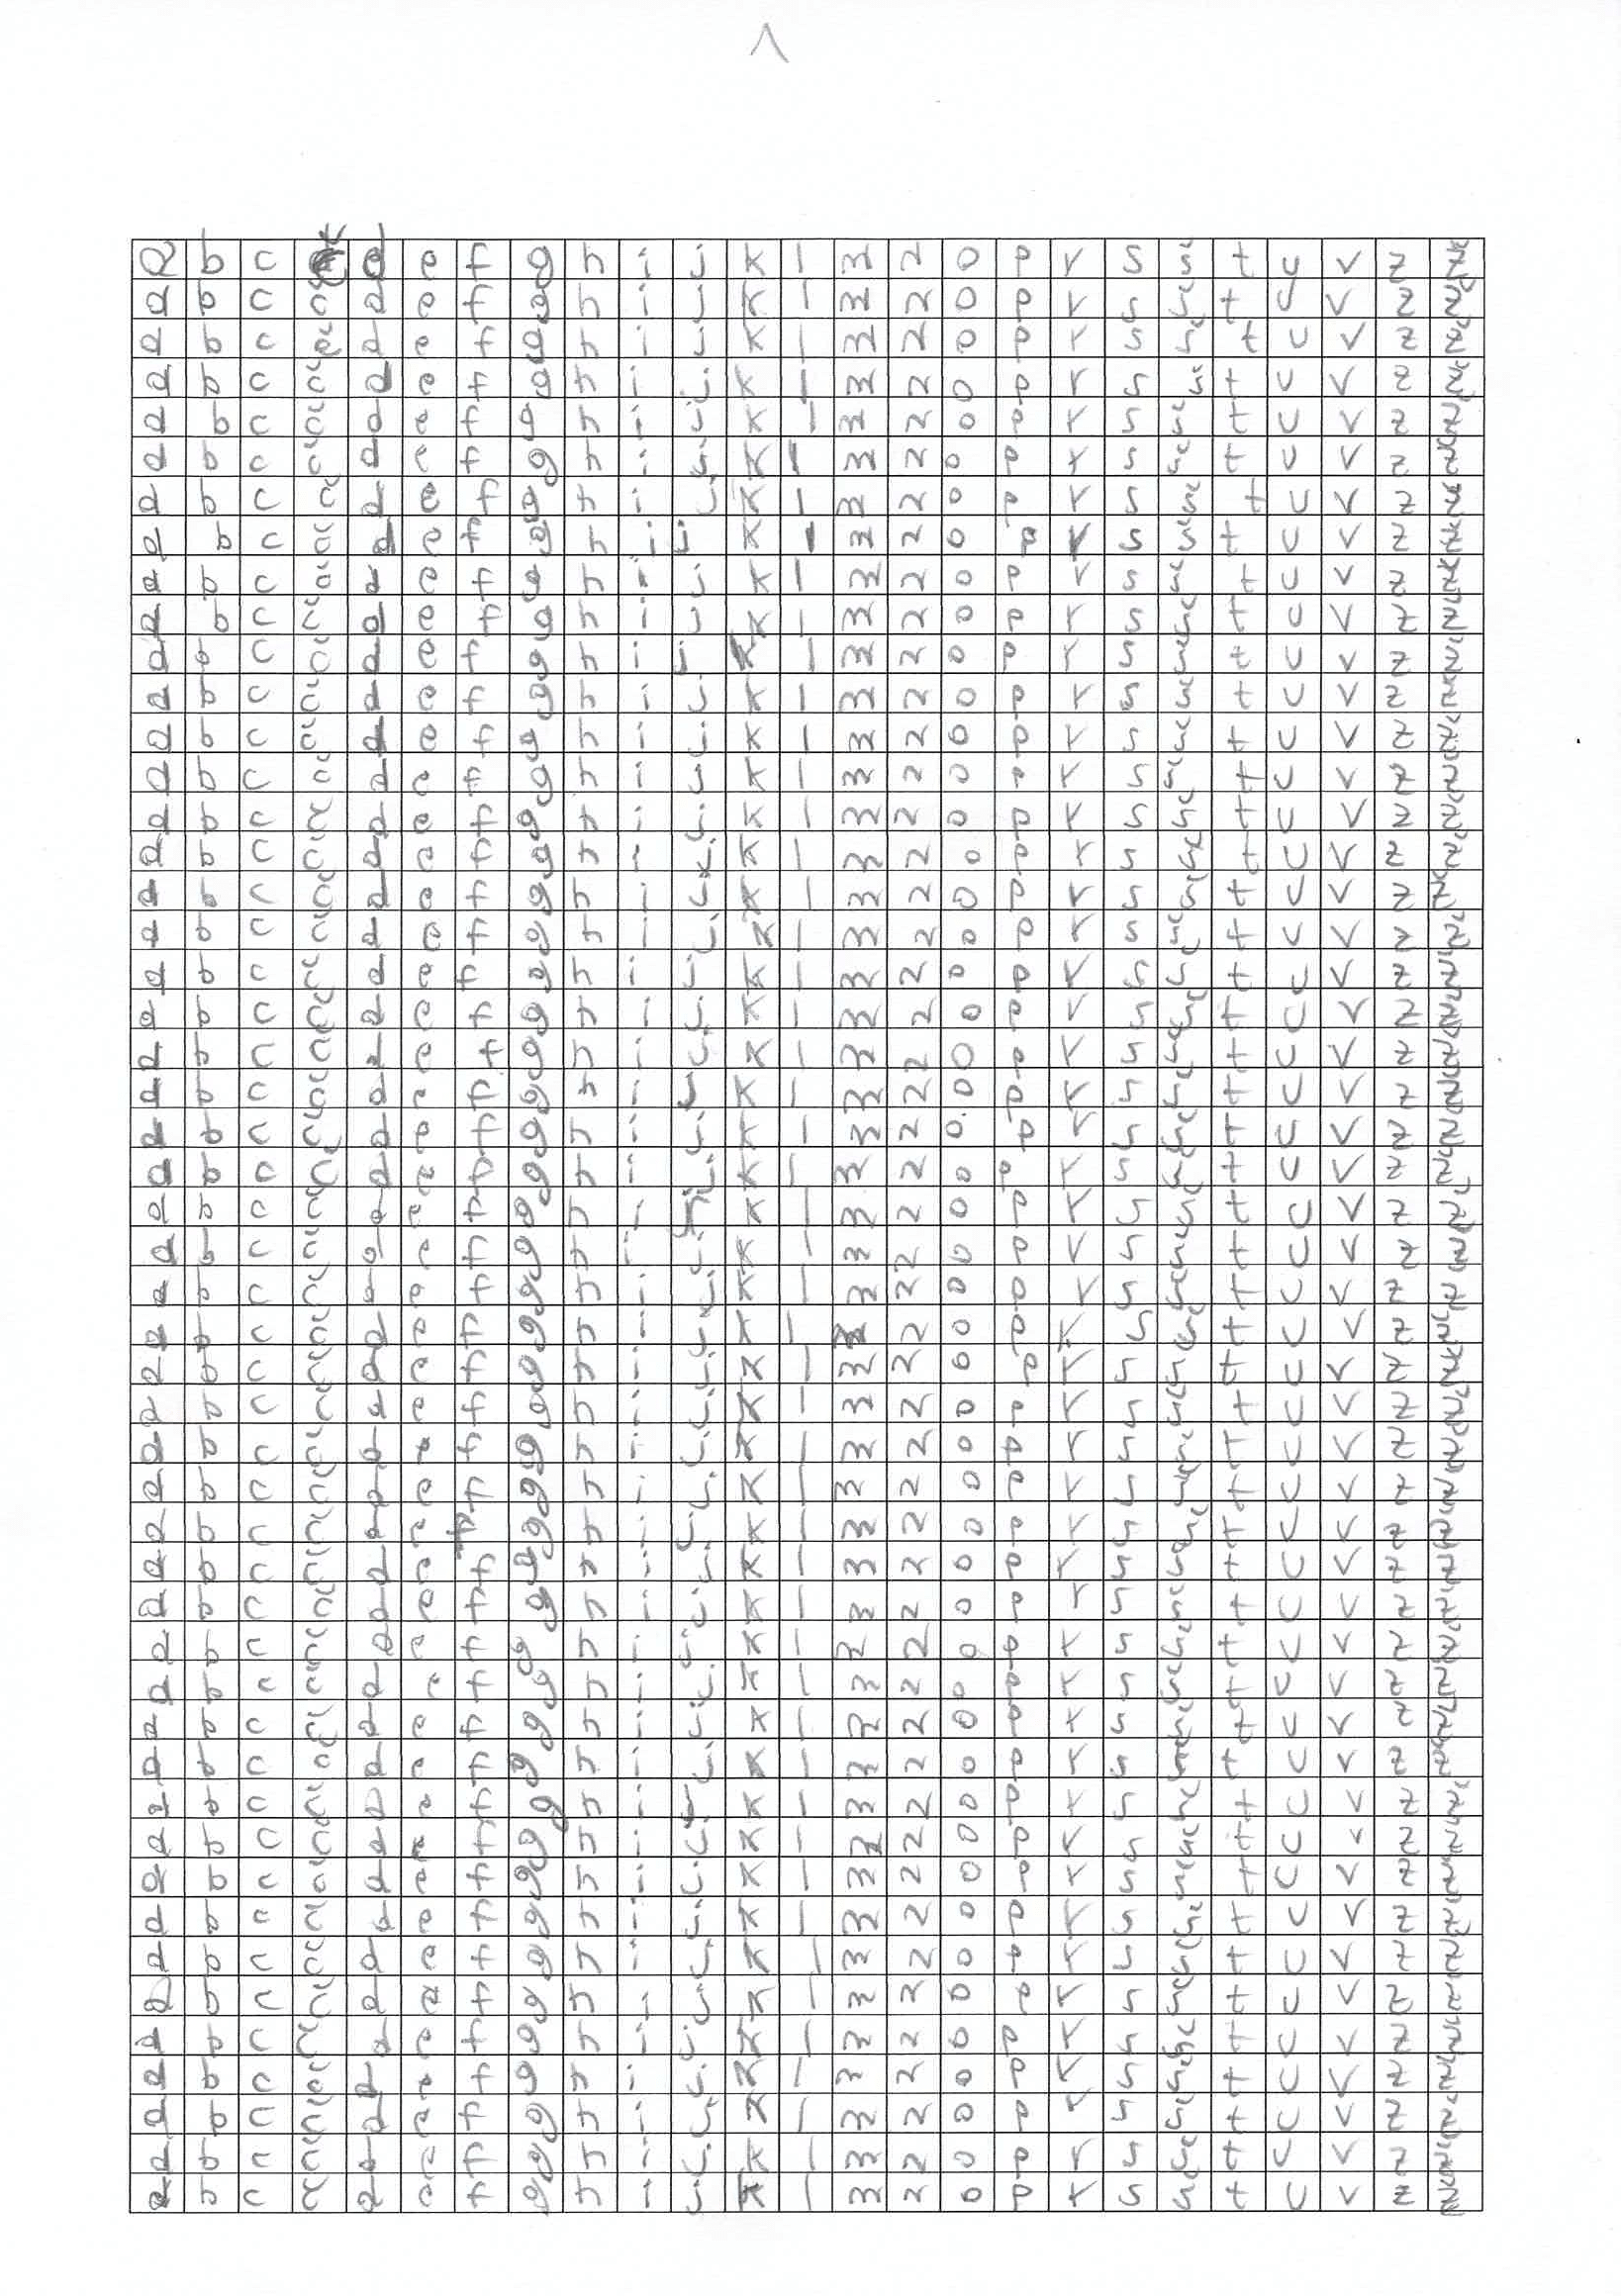 1
a b c č d e f g h i j k l m n o p r s š t u v z ž
a b c č d e f g h i j k l m n o p r s š t u v z ž
a b c č d e f g h i j k l m n o p r s š t u v z ž
a b c č d e f g h i j k l m n o p r s š t u v z ž
a b c č d e f g h i j k l m n o p r s š t u v z ž
a b c č d e f g h i j k l m n o p r s š t u v z ž
a b c č d e f g h i j k l m n o p r s š t u v z ž
a b c č d e f g h i j k l m n o p r s š t u v z ž
a b c č d e f g h i j k l m n o p r s š t u v z ž
a b c č d e f g h i j k l m n o p r s š t u v z ž
a b c č d e f g h i j k l m n o p r s š t u v z ž
a b c č d e f g h i j k l m n o p r s š t u v z ž
a b c č d e f g h i j k l m n o p r s š t u v z ž
a b c č d e f g h i j k l m n o p r s š t u v z ž
a b c č d e f g h i j k l m n o p r s š t u v z ž
a b c č d e f g h i j k l m n o p r s š t u v z ž
a b c č d e f g h i j k l m n o p r s š t u v z ž
a b c č d e f g h i j k l m n o p r s š t u v z ž
a b c č d e f g h i j k l m n o p r s š t u v z ž
a b c č d e f g h i j k l m n o p r s š t u v z ž
a b c č d e f g h i j k l m n o p r s š t u v z ž
a b c č d e f g h i j k l m n o p r s š t u v z ž
a b c č d e f g h i j k l m n o p r s š t u v z ž
a b c č d e f g h i j k l m n o p r s š t u v z ž
a b c č d e f g h i j k l m n o p r s š t u v z ž
a b c č d e f g h i j k l m n o p r s š t u v z ž
a b c č d e f g h i j k l m n o p r s š t u v z ž
a b c č d e f g h i j k l m n o p r s š t u v z ž
a b c č d e f g h i j k l m n o p r s š t u v z ž
a b c č d e f g h i j k l m n o p r s š t u v z ž
a b c č d e f g h i j k l m n o p r s š t u v z ž
a b c č d e f g h i j k l m n o p r s š t u v z ž
a b c č d e f g h i j k l m n o p r s š t u v z ž
a b c č d e f g h i j k l m n o p r s š t u v z ž
a b c č d e f g h i j k l m n o p r s š t u v z ž
a b c č d e f g h i j k l m n o p r s š t u v z ž
a b c č d e f g h i j k l m n o p r s š t u v z ž
a b c č d e f g h i j k l m n o p r s š t u v z ž
a b c č d e f g h i j k l m n o p r s š t u v z ž
a b c č d e f g h i j k l m n o p r s š t u v z ž
a b c č d e f g h i j k l m n o p r s š t u v z ž
a b c č d e f g h i j k l m n o p r s š t u v z ž
a b c č d e f g h i j k l m n o p r s š t u v z ž
a b c č d e f g h i j k l m n o p r s š t u v z ž
a b c č d e f g h i j k l m n o p r s š t u v z ž
a b c č d e f g h i j k l m n o p r s š t u v z ž
a b c č d e f g h i j k l m n o p r s š t u v z ž
a b c č d e f g h i j k l m n o p r s š t u v z ž
a b c č d e f g h i j k l m n o p r s š t u v z ž
a b c č d e f g h i j k l m n o p r s š t u v z ž